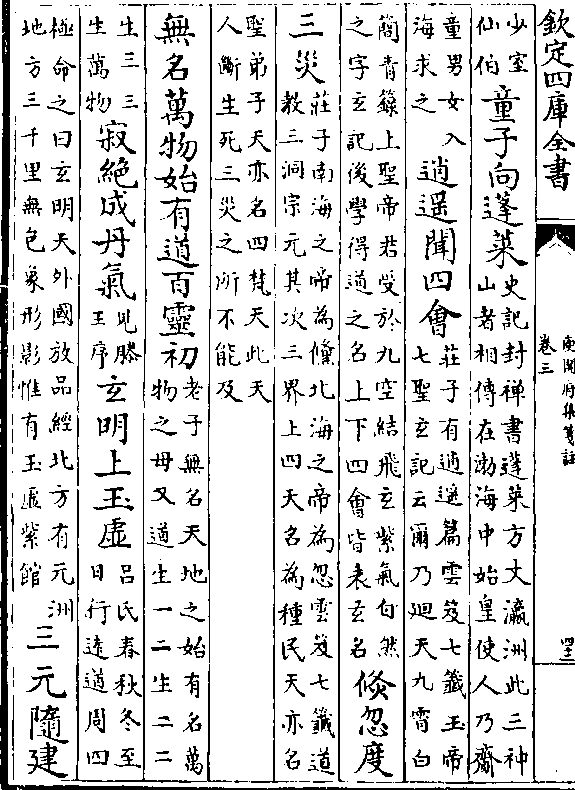 欽定四庫全書
庾開府集箋註
卷三
四二
少室
仙伯
童子向蓬萊
史記封禅書蓬萊方丈瀛洲此三神
山者相傳在渤海中始皇使人乃齋
童男女入
海求之
逍遥聞四會
莊子有逍遥篇雲笈七籤玉帝
七聖玄記云爾乃廻天九霄白
簡青籙上聖帝君受於九空結飛玄紫氣自然
之字玄記後學得道之名上下四會皆表玄名
倏忽度
三災
莊子南海之帝為倏北海之帝為忽雲笈七籤道
教三洞宗元其次三界上四天名為種民天亦名
聖弟子天亦名四梵天此天
人斷生死三災之所不能及
無名萬物始有道百靈初
老子無名天地之始有名萬
物之母又道生一二生二二
生三三
生萬物
寂絶成丹氣
見滕
王序
玄明上玉虛
吕氏春秋冬至
日行逺道周四
極命之曰玄明天外國放品經北方有元洲
地方三千里無色象形影惟有玉虛紫館
三元隨建